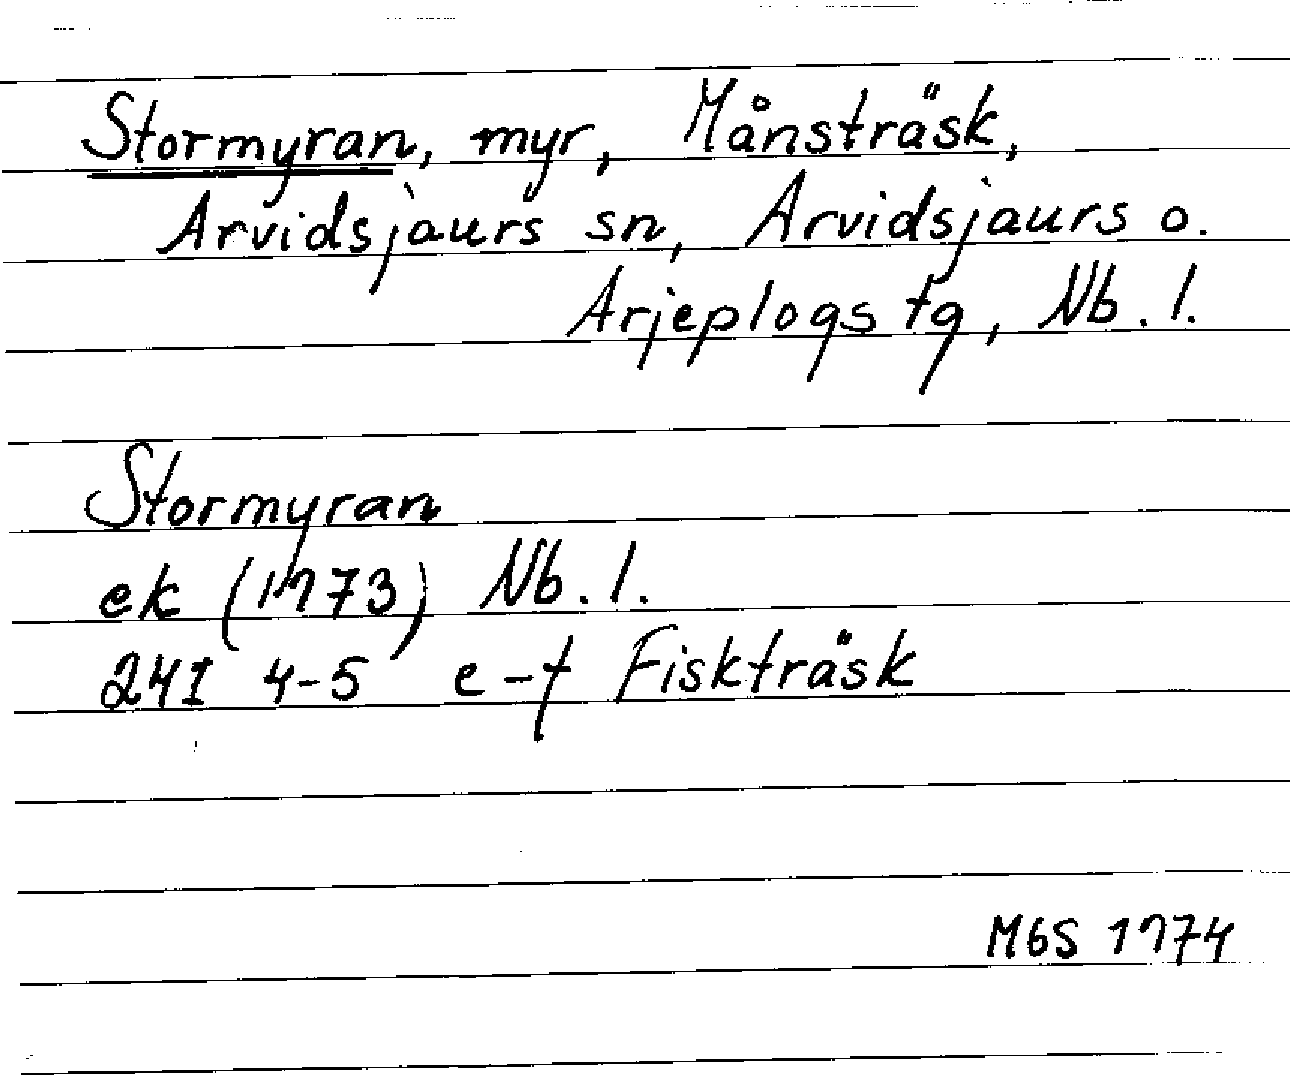 Stormyran, myr, Månsträsk,
Arvidsjaurs sn, Arvidsjaurs o.
Arjeplogs tg, Nb. l.
Stormyran
ek (1973) Nb. l.
24I 4-5 e-f Fiskträsk
MGS 1974